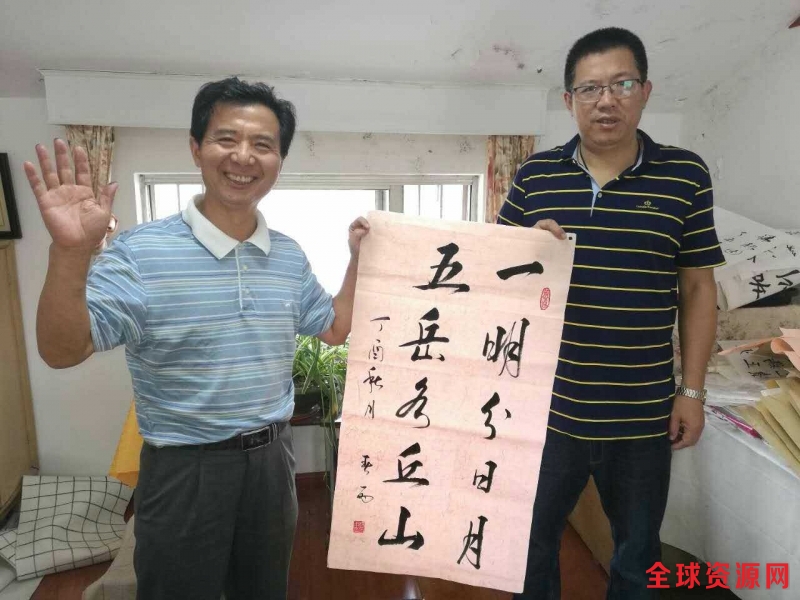 一明分日月
五岳各丘山
丁酉秋月
全球资源网